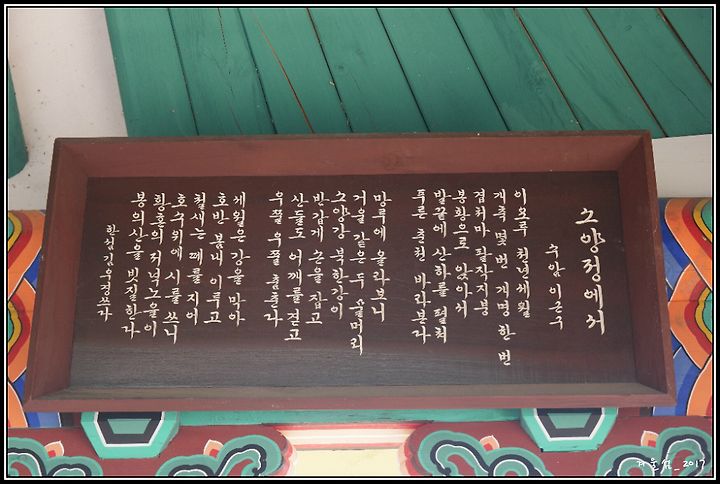 소양정에서
수암 이근구
이오륙 천년세월
개축 몇 번 개명 한 번
겹처마 팔작지붕
봉황으로 앉아서
발끝에 산하를 펼쳐
푸른 춘천 바라본다
망루에 올라보니
거울 같은 두 물머리
소양강 북한강이
반갑게 손을 잡고
산들도 어깨를 걷고
우쭐 우쭐 춤춘다
세월은 강을 막아
호반 봄내 이루고
철새는 떼를 지어
호수위에 시를 쓰니
황혼의 저녁노을이
봉의산을 빗질한다
2017